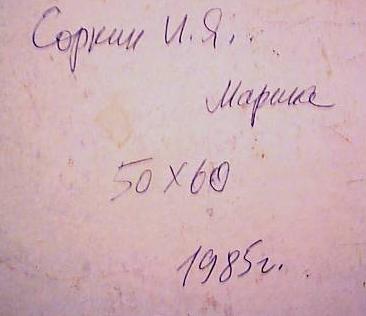 Соркин И.Я.
Марина
50X60
1985г.